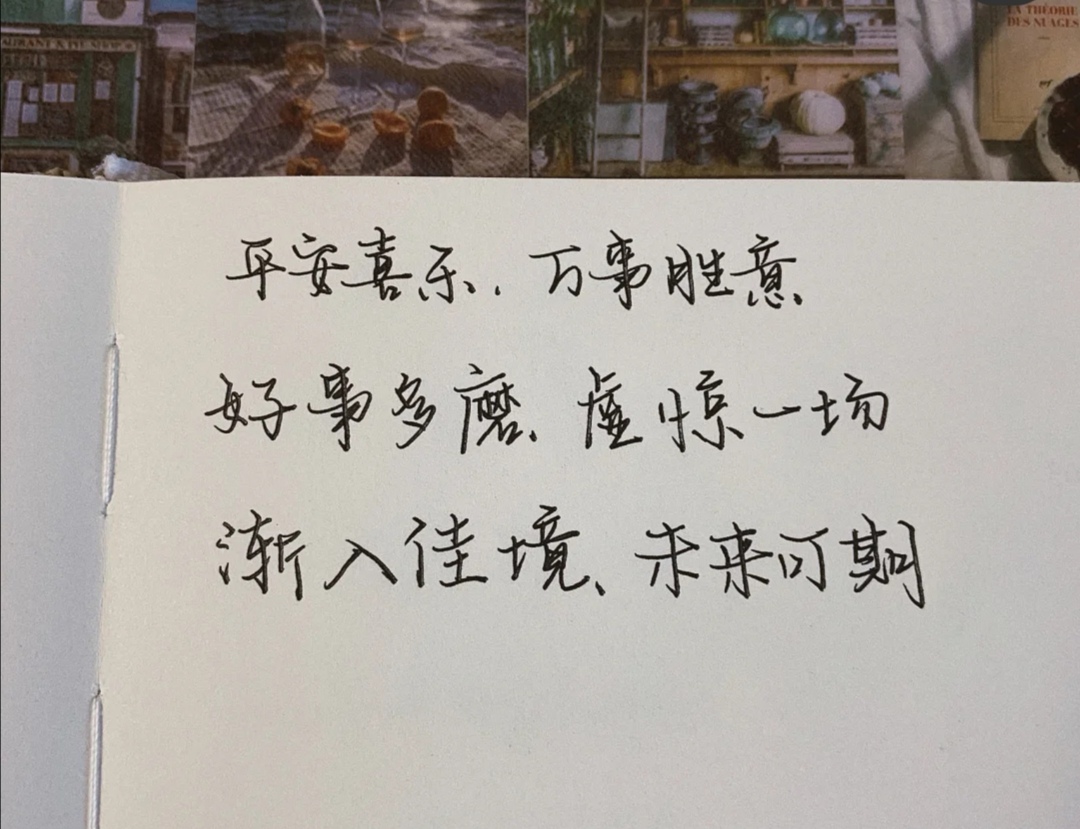 AURANT & PIE SHOP
LA THÉORIE
DES NUAGES
平安喜乐,万事胜意
好事多磨、虚惊一场
渐入佳境、未来可期